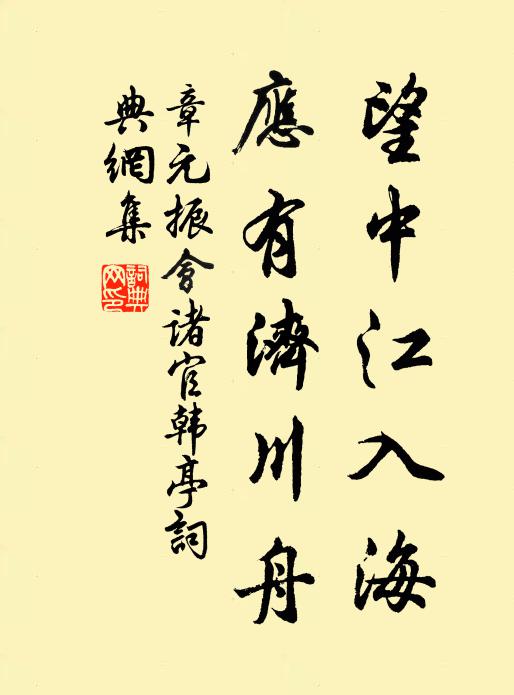 望中江入海
應有濟川舟
章元振會諸官韩亭詞
典網集
詞典網印